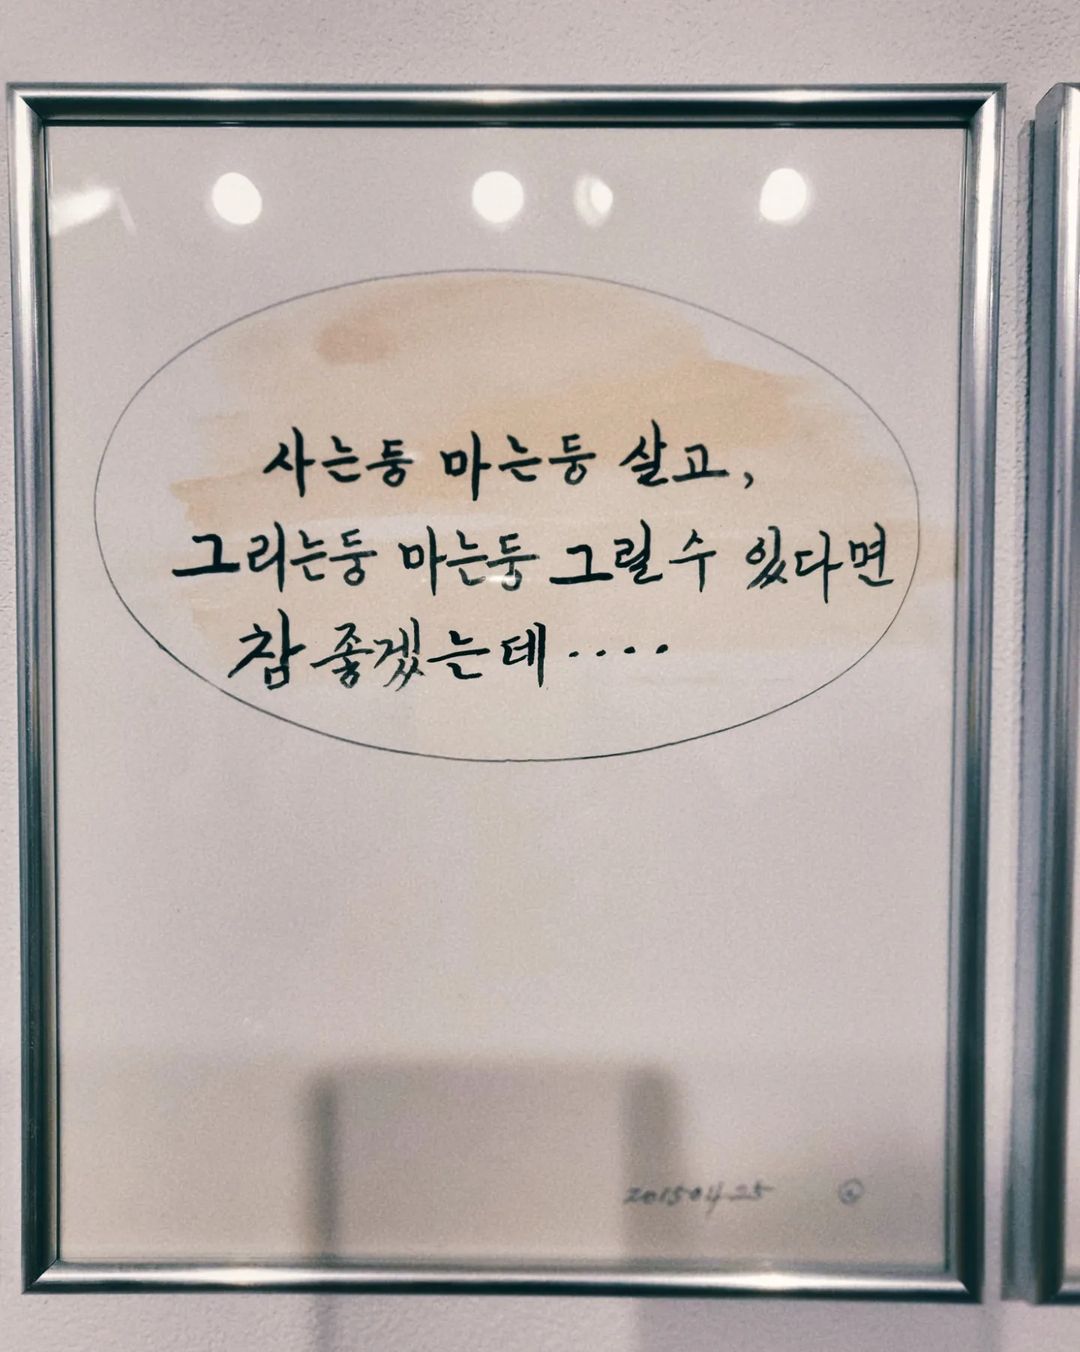 사는둥 마는둥 살고,
그리는둥 마는둥 그릴 수 있다면
참 좋겠는데····
2015 04 25